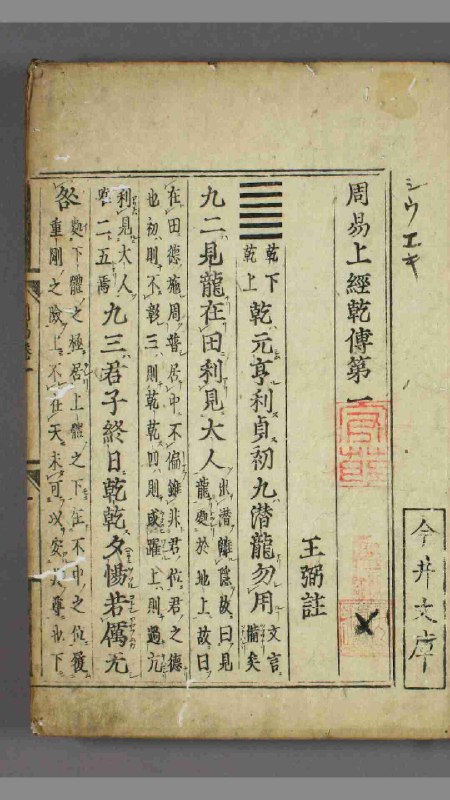 シウエキ
今井文庫
周易上經乾傳第一
王弼註
乾下
乾上
乾元亨利貞初九潛龍勿用
文言
備矣
九二見龍在田利見大人
出潛離隱故曰見
龍處於地上故曰
在田德施周普居中不偏雖非君位君之德
也初則不彰三則乾乾四則或躍上則過亢
利見大人
唯二五焉
九三君子終日乾乾夕惕若厲无
咎
處下體之極居上體之下在不中之位履
重剛之險上不在天未可以安其尊也下